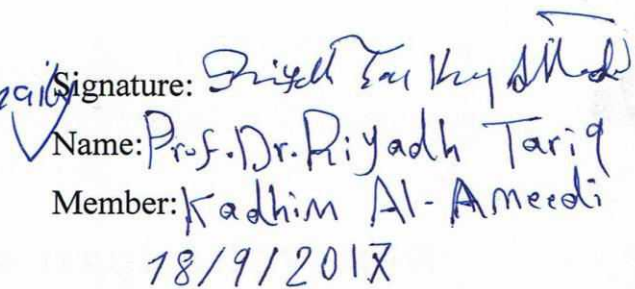 Signature:
Name: Prof. Dr. Riyadh Tariq
Member: Kadhim Al-Ameedi
18/9/2017